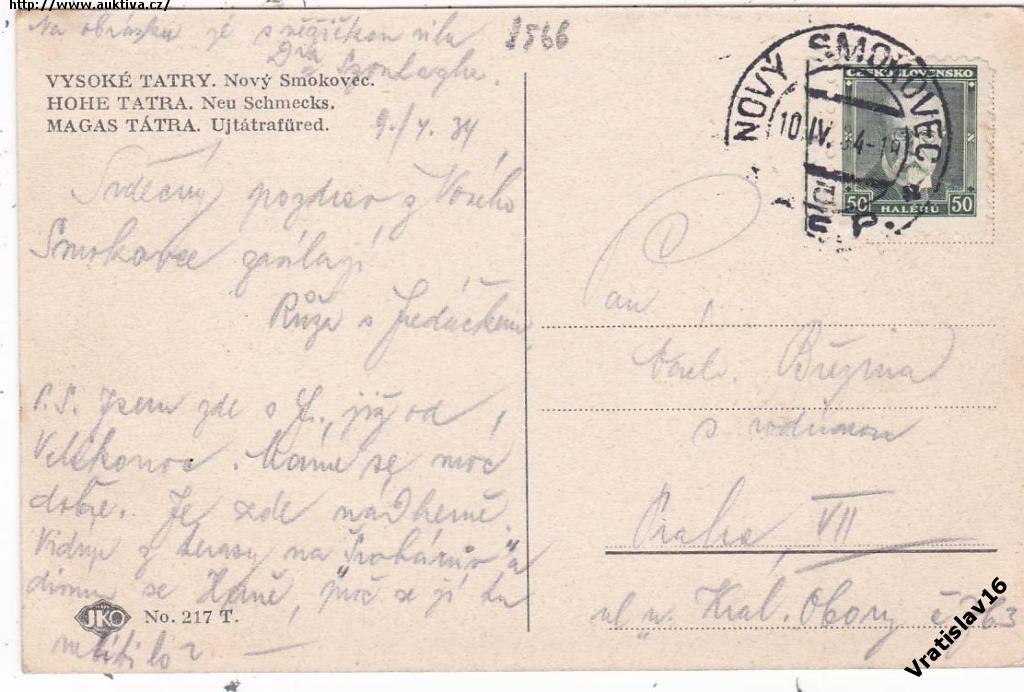 http://www.auktiva.cz/
Na obrázku je s křížkem vila
Dra Szontagha.
8566
VYSOKÉ TATRY. Nový Smokovec.
HOHE TATRA. Neu Schmecks.
MAGAS TÁTRA. Ujtátrafüred.
9./4. 34
Srdečný pozdrav z Nového
Smokovce zasílají
Růža s Jedáčkem
P.S. Jsem zde s J., již od
Velikonoc. Máme se moc
dobře. Je zde nádherně.
z terasy na
se Haně, proč se jí tu
nelíbilo?
NOVÝ SMOKOVEC
10.IV.34-16
ČESKOSLOVENSKO
50 HALÉŘŮ 50
Pan
Březina
s rodinou
Praha VII
ul. u Král. Obory č 763
JKO
No. 217 T.
Vratislav16